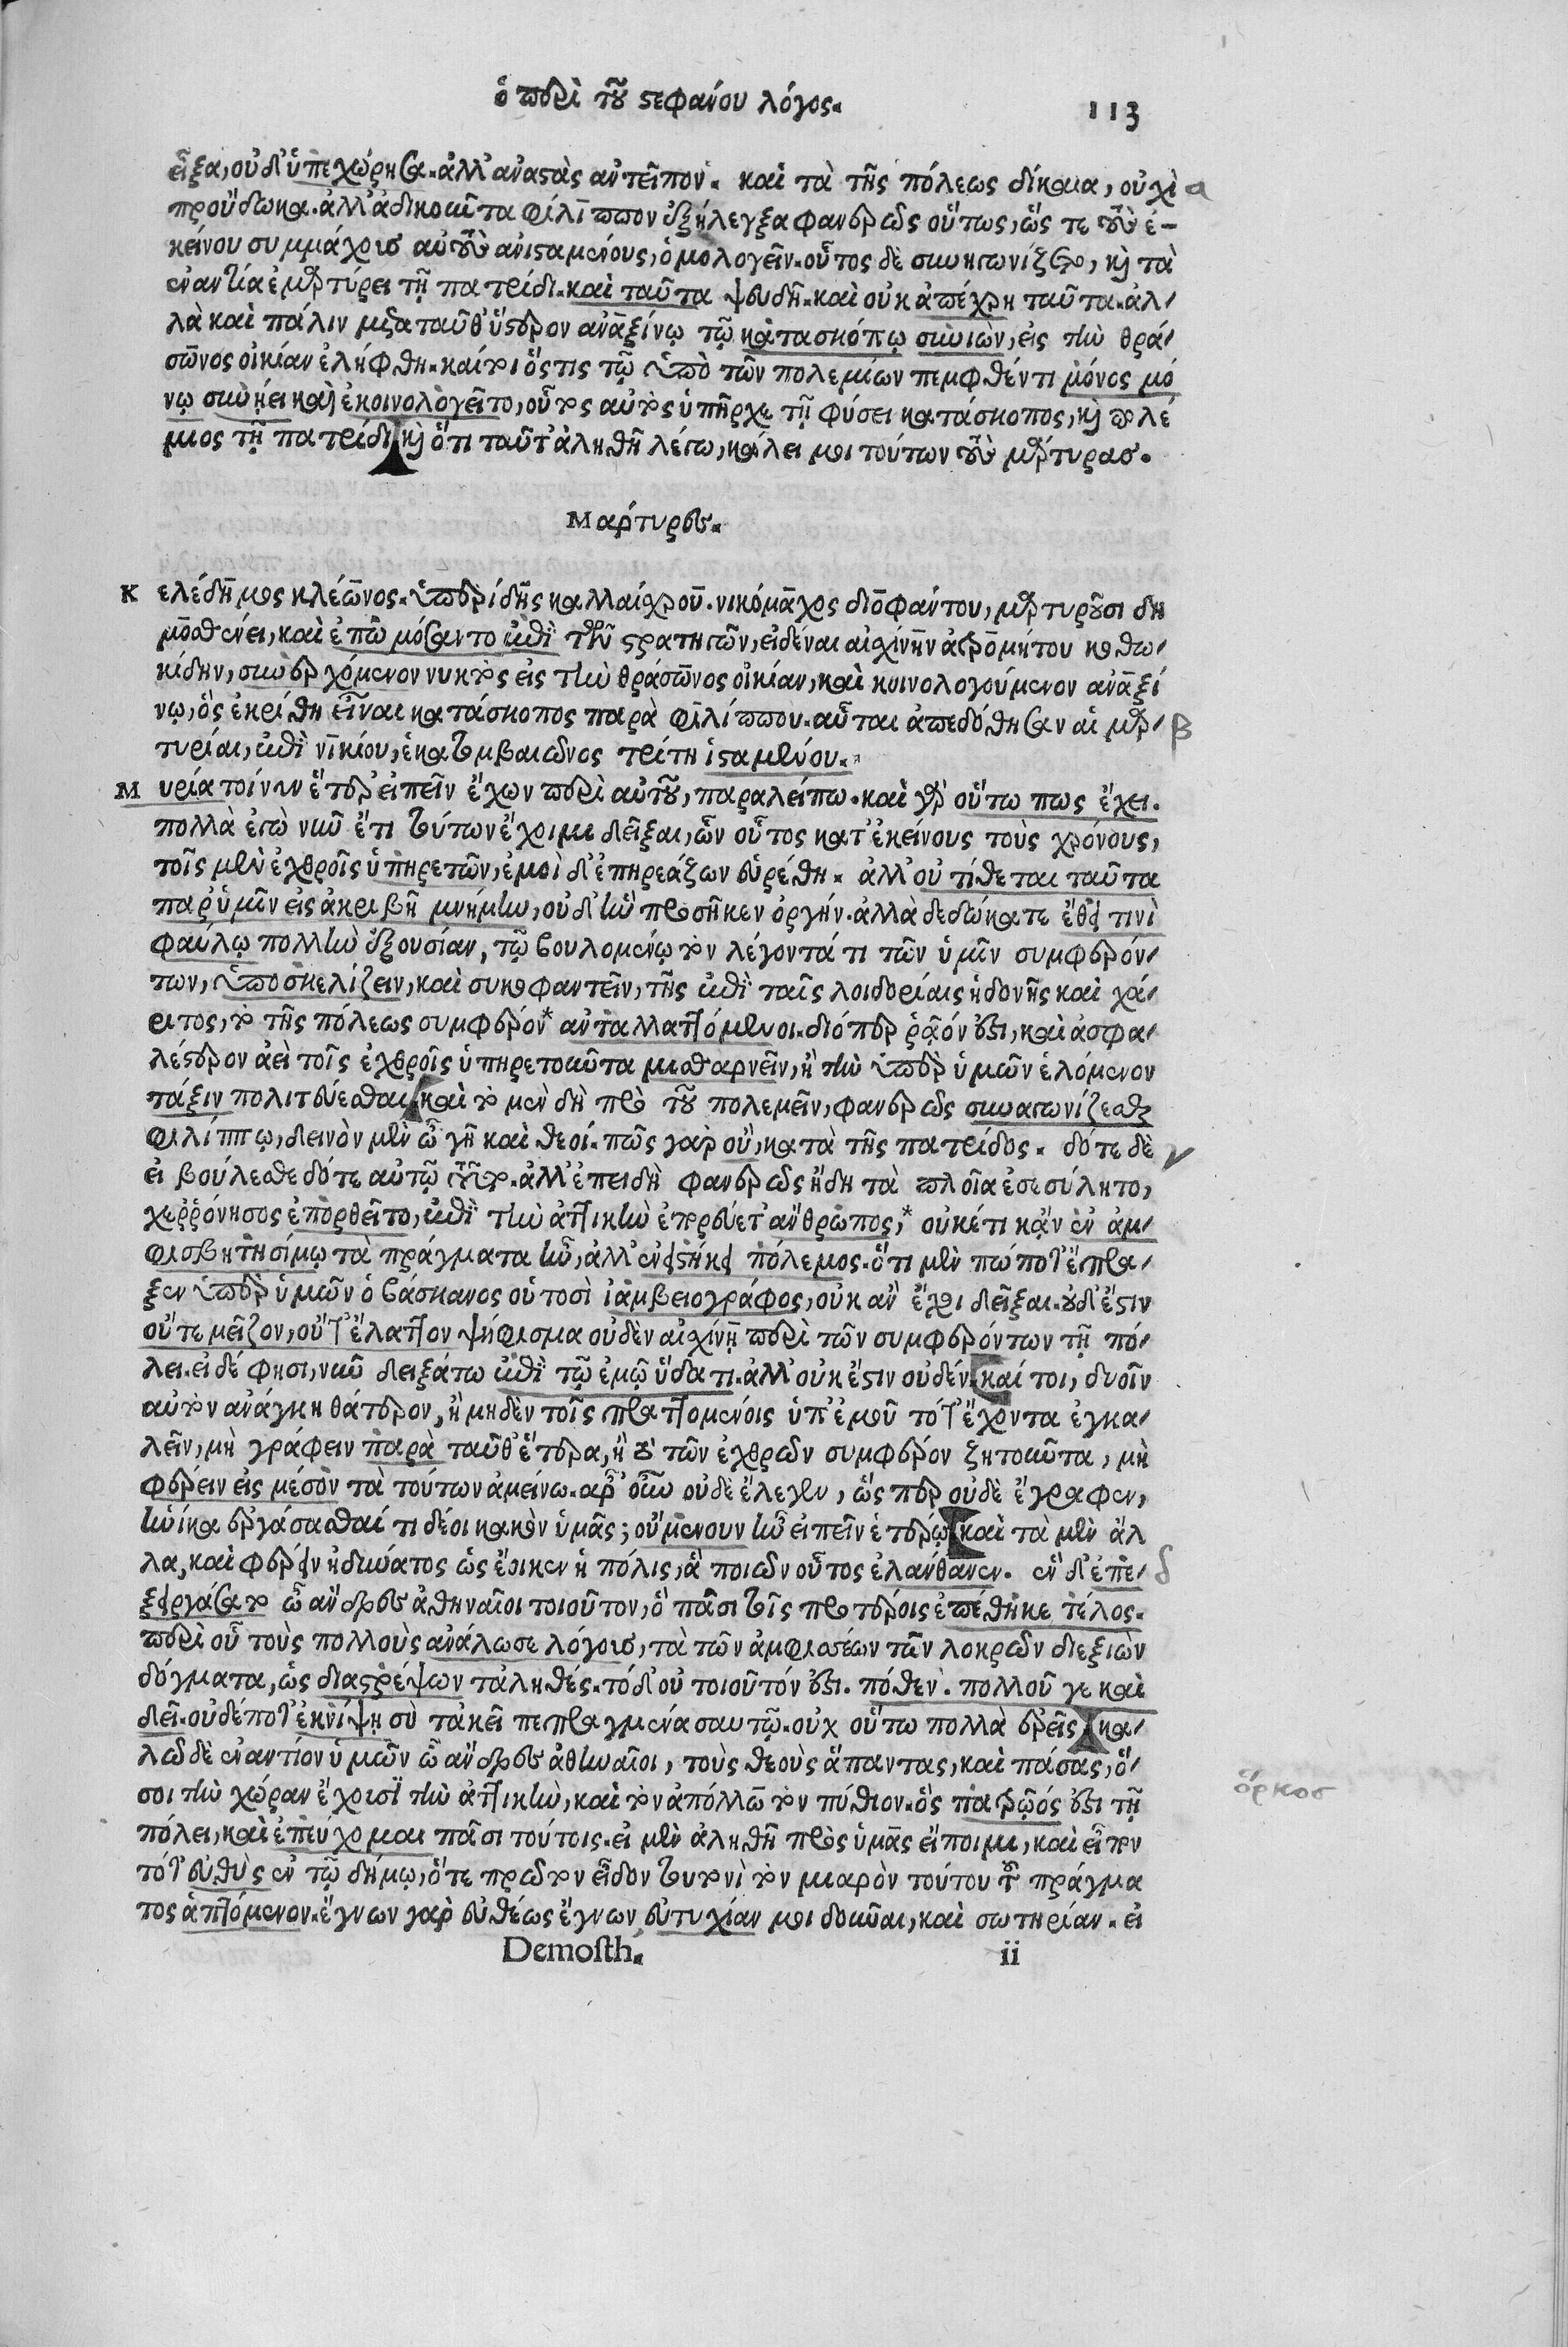 ὁ περὶ τοῦ στεφάνου λόγος. 113
εἶξα, οὐδ' ὑπεχώρησα. ἀλλ' ἀναστὰς ἀντεῖπον. καὶ τὰ τῆς πόλεως δίκαια, οὐχὶ α
προὔδωκα. ἀλλ' ἀδικοῦντα φίλιππον ἐξήλεγξα φανερῶς οὕτως, ὥς τε τοὺς ἐ-
κείνου συμμάχους αὐτοὺς ἀνισταμένους, ὁμολογεῖν. οὗτος δὲ συνηγωνίζετο, καὶ τὰ
ἐναντία ἐμαρτύρει τῇ πατρίδι. καὶ ταῦτα ψευδῆ. καὶ οὐκ ἀπέχρη ταῦτα. ἀλ-
λὰ καὶ πάλιν μετὰ ταῦθ' ὕστερον ἀναξίνῳ τῷ κατασκόπῳ συνιὼν, εἰς τὴν θρά-
σωνος οἰκίαν ἐλήφθη. καίτοι ὅστις τῷ ὑπὸ τῶν πολεμίων πεμφθέντι μόνος μό
νῳ συνῄει καὶ ἐκοινολογεῖτο, οὗτος αὐτὸς ὑπῆρχε τῇ φύσει κατάσκοπος, καὶ πολέ
μιος τῇ πατρίδι καὶ ὅτι ταῦτ' ἀληθῆ λέγω, κάλει μοι τούτων τοὺς μάρτυρας.
Μάρτυρες.
Κ ελέδημος κλέωνος. ὑπερίδης καλλαίχρου. νικόμαχος διοφάντου, μαρτυροῦσι δη
μοσθένει, καὶ ἐπωμόσαντο ἐπὶ τῶν στρατηγῶν, εἰδέναι αἰσχίνην ἀτρομήτου κοθω-
κίδην, συνερχόμενον νυκτὸς εἰς τὴν θράσωνος οἰκίαν, καὶ κοινολογούμενον ἀναξί
νῳ, ὃς ἐκρίθη εἶναι κατάσκοπος παρὰ φιλίππου. αὗται ἀπεδόθησαν αἱ μαρ- β
τυρίαι, ἐπὶ νικίου, ἑκατομβαιῶνος τρίτῃ ἱσταμένου.
Μ υρία τοίνυν ἕτερ' εἰπεῖν ἔχων περὶ αὐτοῦ, παραλείπω. καὶ γὰρ οὕτω πως ἔχει.
πολλὰ ἐγὼ νῦν ἔτι τούτων ἔχοιμι δεῖξαι, ὧν οὗτος κατ' ἐκείνους τοὺς χρόνους,
τοῖς μὲν ἐχθροῖς ὑπηρετῶν, ἐμοὶ δ' ἐπηρεάζων εὑρέθη. ἀλλ' οὐ τίθεται ταῦτα
παρ' ὑμῖν εἰς ἀκριβῆ μνήμην, οὐδ' ἣν προσῆκεν ὀργήν. ἀλλὰ δεδώκατε ἔθει τινὶ
φαύλῳ πολλὴν ἐξουσίαν, τῷ βουλομένῳ τὸν λέγοντά τι τῶν ὑμῖν συμφερόν-
των, ὑποσκελίζειν, καὶ συκοφαντεῖν, τῆς ἐπὶ ταῖς λοιδορίαις ἡδονῆς καὶ χά-
ριτος, τὸ τῆς πόλεως συμφέρον* ἀνταλλαττόμενοι. διόπερ ῥᾷόν ἐστι, καὶ ἀσφα-
λέστερον ἀεὶ τοῖς ἐχθροῖς ὑπηρετοῦντα μισθαρνεῖν, ἢ τὴν ὑπὲρ ὑμῶν ἑλόμενον
τάξιν πολιτεύεσθαι καὶ τὸ μὲν δὴ πρὸ τοῦ πολεμεῖν, φανερῶς συναγωνίζεσθαι
φιλίππῳ, δεινὸν μὲν ὦ γῆ καὶ θεοί. πῶς γὰρ οὔ, κατὰ τῆς πατρίδος. δότε δὲ γ
εἰ βούλεσθε δότε αὐτῷ τοῦτο. ἀλλ' ἐπειδὴ φανερῶς ἤδη τὰ πλοῖα ἐσεσύλητο,
χερρόνησος ἐπορθεῖτο, ἐπὶ τὴν ἀττικὴν ἐπορεύετ' ἅνθρωπος,* οὐκέτι κἂν ἐν ἀμ-
φισβητησίμῳ τὰ πράγματα ἦν, ἀλλ' ἐνειστήκει πόλεμος. ὅτι μὲν πώποτ' ἔπρα-
ξεν ὑπὲρ ὑμῶν ὁ βάσκανος οὑτοσὶ ἰαμβειογράφος, οὐκ ἂν ἔχοι δεῖξαι. οὐδ' ἔστιν
οὔτε μεῖζον, οὔτ' ἔλαττον ψήφισμα οὐδὲν αἰσχίνῃ περὶ τῶν συμφερόντων τῇ πό-
λει. εἰ δέ φησι, νῦν δειξάτω ἐπὶ τῷ ἐμῷ ὕδατι. ἀλλ' οὐκ ἔστιν οὐδέν. καίτοι, δυοῖν
αὐτὸν ἀνάγκη θάτερον, ἢ μηδὲν τοῖς πραττομένοις ὑπ' ἐμοῦ τότ' ἔχοντα ἐγκα-
λεῖν, μὴ γράφειν παρὰ ταῦθ' ἕτερα, ἢ τὸ τῶν ἐχθρῶν συμφέρον ζητοῦντα, μὴ
φέρειν εἰς μέσον τὰ τούτων ἀμείνω. ἆρ' οὖν οὐδὲ ἔλεγεν, ὥσπερ οὐδὲ ἔγραφεν,
ἡνίκα ἐργάσασθαί τι δέοι κακὸν ὑμᾶς; οὐμενουν ἦν εἰπεῖν ἑτέρῳ καὶ τὰ μὲν ἄλ
λα, καὶ φέρειν ἠδύνατος ὡς ἔοικεν ἡ πόλις, ἃ ποιῶν οὗτος ἐλάνθανεν. ἓν δ' ἐπε- δ
ξειργάσατο ὦ ἄνδρες ἀθηναῖοι τοιοῦτον, ὃ πᾶσι τοῖς προτέροις ἐπέθηκε τέλος.
περὶ οὗ τοὺς πολλοὺς ἀνάλωσε λόγους, τὰ τῶν ἀμφισσέων τῶν λοκρῶν διεξιὼν
δόγματα, ὡς διαστρέψων τἀληθές. τὸ δ' οὐ τοιοῦτόν ἐστι. πόθεν. πολλοῦ γε καὶ
δεῖ. οὐδέποτ' ἐκνίψῃ σὺ τἀκεῖ πεπραγμένα σαυτῷ. οὐχ οὕτω πολλὰ ἐρεῖς κα-
λῶ δὲ ἐναντίον ὑμῶν ὦ ἄνδρες ἀθηναῖοι, τοὺς θεοὺς ἅπαντας, καὶ πάσας, ὅ-
σοι τὴν χώραν ἔχουσι τὴν ἀττικὴν, καὶ τὸν ἀπόλλω τὸν πύθιον. ὃς πατρῷός ἐστι τῇ
πόλει, καὶ ἐπεύχομαι πᾶσι τούτοις. εἰ μὲν ἀληθῆ πρὸς ὑμᾶς εἴποιμι, καὶ εἶπον
τότ' εὐθὺς ἐν τῷ δήμῳ, ὅτε πρῶτον εἶδον τουτονὶ τὸν μιαρὸν τούτου τοῦ πράγμα
τος ἁπτόμενον. ἔγνων γὰρ εὐθέως ἔγνων, εὐτυχίαν μοι δοῦναι, καὶ σωτηρίαν. εἰ
Demosth. ii
ὅρκος